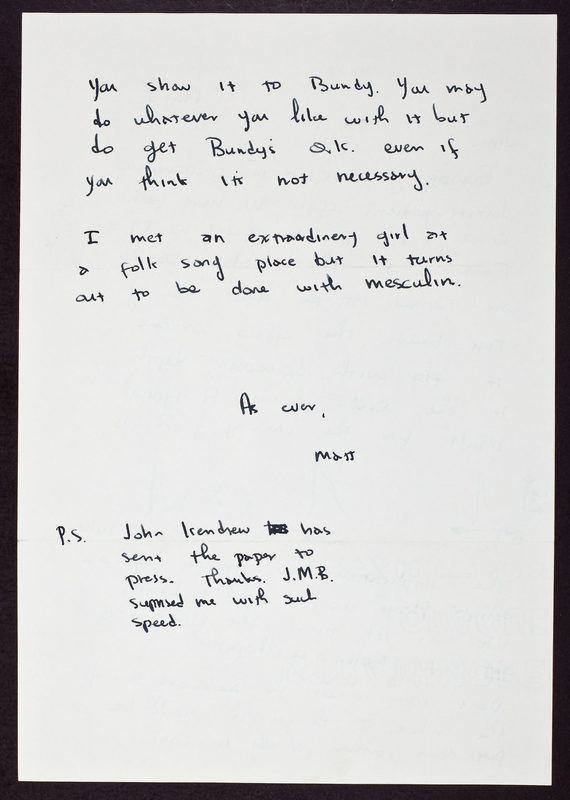 You show it to Bundy. You may
do whatever you like with it but
do get Bundy's O.K. even if
you think it's not necessary.
I met an extraodinery girl at
a folk song place but it turns
out to be done with mesculin.
As ever,
Matt
P.S. John Kendrew has
sent the paper to
press. Thanks. J.M.B.
suprised me with such
speed.